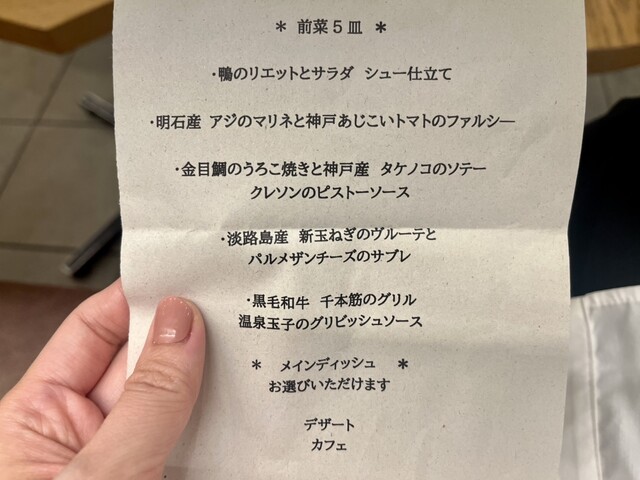 ＊ 前菜５皿 ＊
・鴨のリエットとサラダ シュー仕立て
・明石産 アジのマリネと神戸あじこいトマトのファルシー
・金目鯛のうろこ焼きと神戸産 タケノコのソテー
クレソンのピストーソース
・淡路島産 新玉ねぎのヴルーテと
パルメザンチーズのサブレ
・黒毛和牛 千本筋のグリル
温泉玉子のグリビッシュソース
＊ メインディッシュ ＊
お選びいただけます
デザート
カフェ